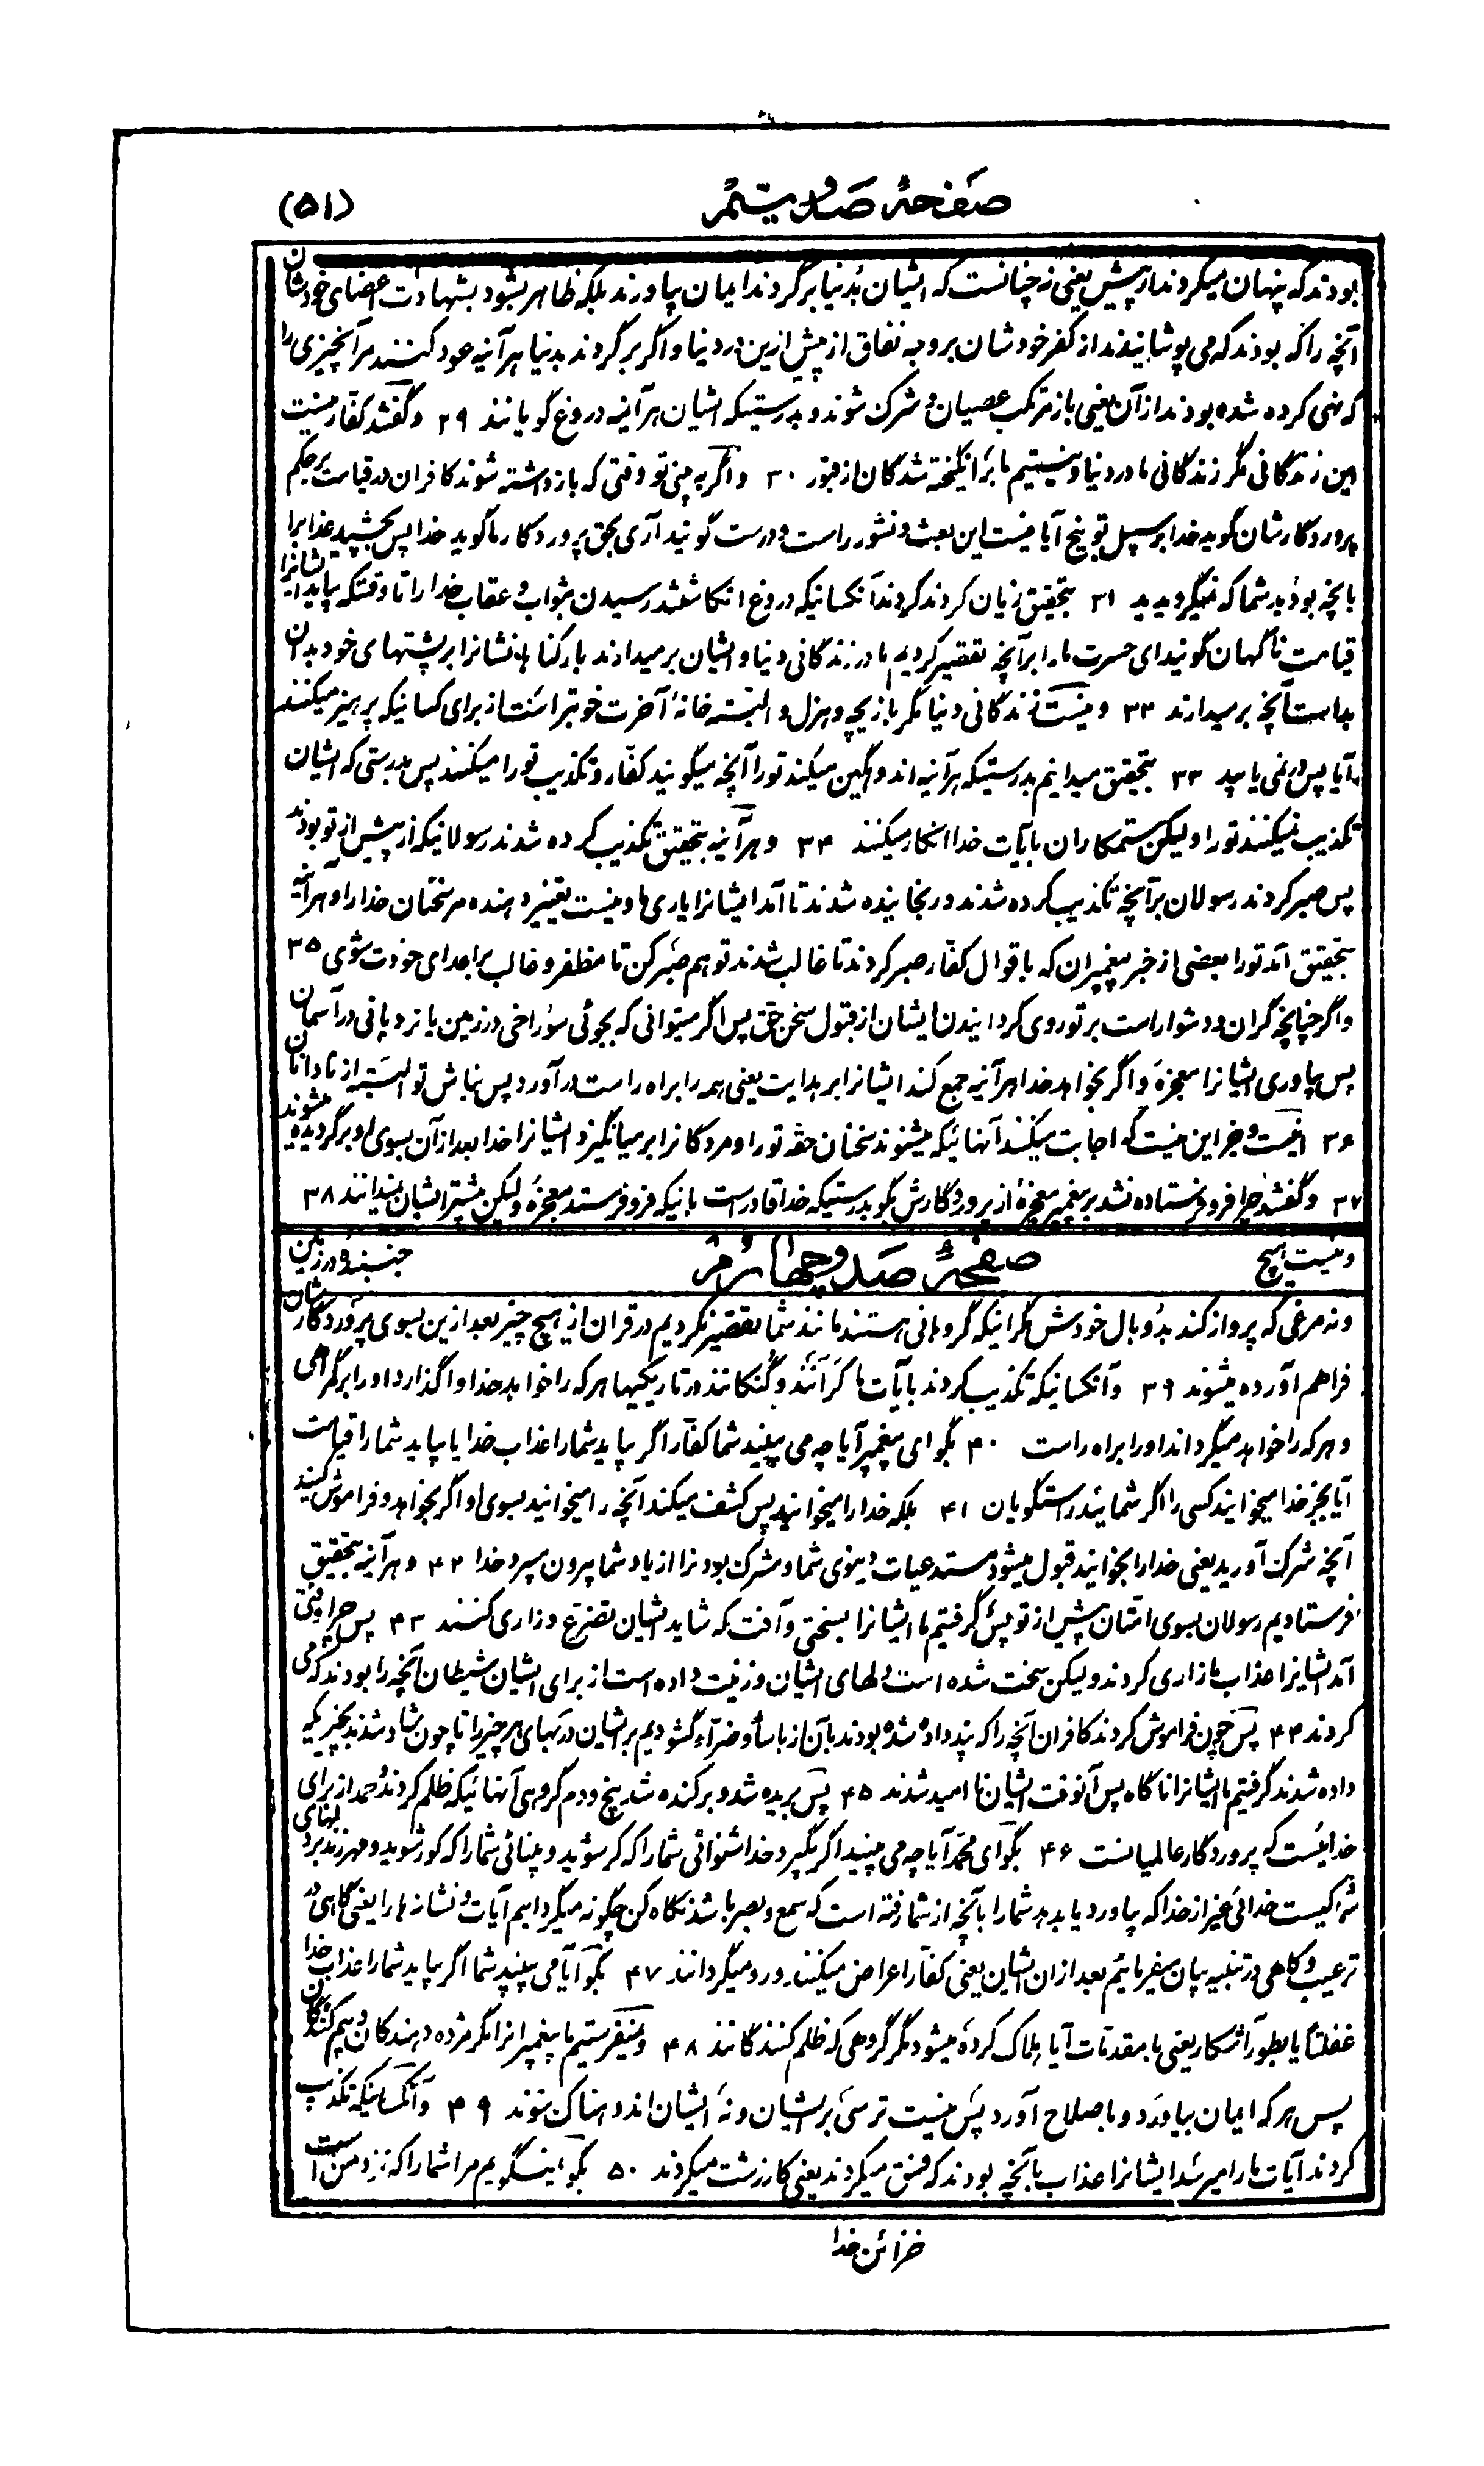 صفحهٔ صد و سیّم
(۵۱)
بودند که پنهان میکردند از پیش یعنی نه چنانست که ایشان بدنیا برگردند ایمان بیاورند بلکه ظاهر بشود بشهادت اعضای خودشان
آنچه را که بودند که می پوشانیدند از کفر خودشان بر وجه نفاق از پیش ازین در دنیا و اگر برگردند بدنیا هرآینه عود کنند مر آنچیزی را
که نهی کرده شده بودند از آن یعنی باز مرتکب عصیان و شرک شوند و بدرستیکه ایشان هرآینه دروغ گویانند ۲۹ و گفتند کفّار نیست
این زندگانی مگر زندگانی ما در دنیا و نیستیم ما برانگیخته شدگان از قبور ۳۰ و اگر به بینی تو وقتی که بازداشته شوند کافران در قیامت بر حکم
پروردگارشان گوید خدا بر سبیل توبیخ آیا نیست این بعث و نشور راست و درست گویند آری بحق پروردگار ما گوید خدا پس بچشید عذاب را
بانچه بودید شما که نمیگرویدید ۳۱ بتحقیق زیان کردند آنکسانیکه دروغ انگاشتند رسیدن بثواب و عقاب خدا را تا وقتیکه بیاید ایشانرا
قیامت ناگهان گویند ای حسرت ما را بر آنچه تقصیر کردیم ما در زندگانی دنیا و ایشان برمیدارند بار گناهانشانرا بر پشتهای خود بدان
بد است آنچه برمیدارند ۳۲ و نیست زندگانی دنیا مگر بازیچه و هزل و البته خانهٔ آخرت خوبتر است از برای کسانیکه پرهیز میکنند
آیا پس در نمی یابید ۳۳ بتحقیق میدانیم بدرستیکه هرآینه اندوهگین میکند تو را آنچه میگویند کفّار و تکذیب تو را میکنند پس بدرستی که ایشان
تکذیب نمیکنند تو را ولیکن ستمکاران بآیات خدا انکار میکنند ۳۴ و هرآینه بتحقیق تکذیب کرده شدند رسولانیکه از پیش از تو بودند
پس صبر کردند رسولان بر آنچه تکذیب کرده شدند و رنجانیده شدند تا آمد ایشانرا یاری ما و نیست تغییر دهنده مر سخنان خدا را و هرآینه
بتحقیق آمد تو را بعضی از خبر پیغمبران که باقوال کفّار صبر کردند تا غالب شدند تو هم صبر کن تا مظفر و غالب بر اعدای خودت شوی ۳۵
و اگر چنانچه گران و دشوار است بر تو روی گردانیدن ایشان از قبول سخن حق پس اگر میتوانی که بجوئی سوراخی در زمین یا نردبانی در آسمان
پس بیاوری ایشانرا معجزه و اگر بخواهد خدا هرآینه جمع کند ایشانرا بر هدایت یعنی همه را براه راست درآورد پس نباش تو البته از نادانان
۳۶ اینست و جز این نیست که اجابت میکنند آنهائیکه میشنوند سخنان حقه تو را و مردگانرا برمیانگیزد ایشانرا خدا بعد از آن بسوی او برگردیده میشوند
۳۷ و گفتند چرا فرو فرستاده نشد بر پیغمبر معجزهٔ از پروردگارش بگو بدرستیکه خدا قادر است بانیکه فرو فرستد معجزهٔ ولیکن بیشتر ایشان نمیدانند ۳۸
و نیست هیچ
صفحهٔ صد و چهارم
جنبندهٔ در زمین
و نه مرغی که پرواز کند بدو بال خودش مگر اینکه گروهانی هستند مانند شما تقصیر نکردیم در قران از هیچ چیز بعد ازین بسوی پروردگارشان
فراهم آورده میشوند ۳۹ و آنکسانیکه تکذیب کردند بآیات ما کرانند و گنگانند در تاریکیها هر که را خواهد خدا واگذارد او را بر گمراهی
و هر که را خواهد میگرداند او را براه راست ۴۰ بگو ای پیغمبر آیا چه می بینید شما کفّار اگر بیاید شما را عذاب خدا یا بیاید شما را قیامت
آیا بجز خدا میخوانید کسی را اگر شمائید راستگویان ۴۱ بلکه خدا را میخوانید پس کشف میکند آنچه را میخوانید بسوی او اگر بخواهد و فراموش کنید
آنچه شرک آورید یعنی خدا را بخوانید قبول میشود مستدعیات دنیوی شما و مشرک بودنرا از یاد شما بیرون میبرد خدا ۴۲ و هرآینه بتحقیق
فرستادیم رسولان بسوی امّتان پیش از تو پس گرفتیم ما ایشانرا بسختی و آفت که شاید ایشان تضرّع و زاری کنند ۴۳ پس چرا وقتی
آمد ایشانرا عذاب ما زاری کردند ولیکن سخت شده است دلهای ایشان و زینت داده است از برای ایشان شیطان آنچه را بودند که می
کردند ۴۴ پس چون فراموش کردند کافران آنچه را که پند داده شده بودند بآن از بأسا و ضرّاء گشودیم بر ایشان درهای هر چیز را تا چون شاد شدند بچیزیکه
داده شدند گرفتیم ما ایشانرا ناگاه پس آنوقت ایشان نا امید شدند ۴۵ پس بریده شد و برکنده شد بیخ و دم گروهی آنهائیکه ظلم کردند و حمد از برای
خدائیست که پروردگار عالمیانست ۴۶ بگو ای محمّد آیا چه می بینید اگر بگیرد خدا شنوائی شما را که کر شوید و بینائی شما را که کور شوید و مهر زند بر دلهای
شما کیست خدائی غیر از خدا که بیاورد یا بدهد شما را بآنچه از شما رفته است که سمع و بصر باشد نگاه کن چگونه میگردانیم آیات و نشانه ها را یعنی گاهی در
ترغیب و گاهی در تنبیه بیان میفرمائیم بعد از ان ایشان یعنی کفّار اعراض میکنند و رو میگردانند ۴۷ بگو آیا می بینید شما اگر بیاید شما را عذاب خدا
غفلتاً یا بطور آشکار یعنی با مقدّمات آیا هلاک کرده میشود مگر گروهی که ظلم کنندگانند ۴۸ و نمیفرستیم ما پیغمبرانرا مگر مژده دهندگان و بیم کنندگان
پس هر که ایمان بیاورد و باصلاح آورد پس نیست ترسی بر ایشان و نه ایشان اندوهناک شوند ۴۹ و آنکسانیکه تکذیب
کردند آیات ما را میرسد ایشانرا عذاب بآنچه بودند که فسق میکردند یعنی کار زشت میکردند ۵۰ بگو نمیگویم مر شما را که نزد من است
خزائن خدا